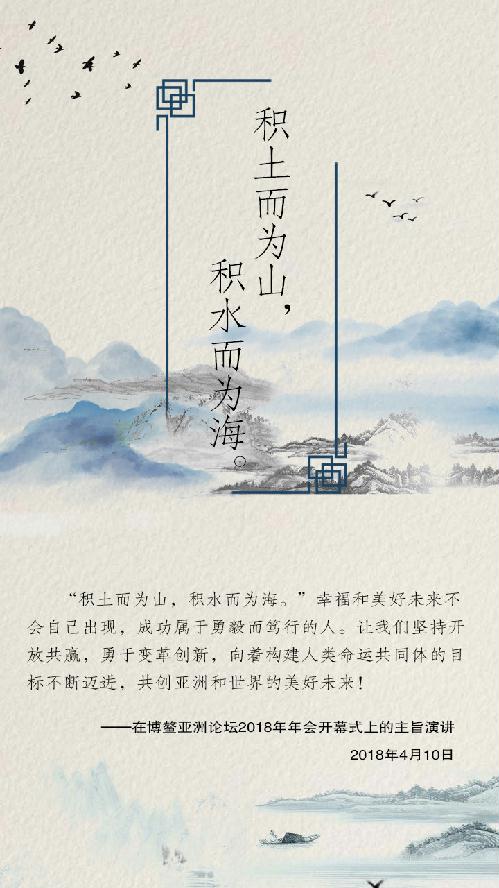 积土而为山，
积水而为海。
“积土而为山，积水而为海。”幸福和美好未来不
会自己出现，成功属于勇毅而笃行的人。让我们坚持开
放共赢，勇于变革创新，向着构建人类命运共同体的目
标不断迈进，共创亚洲和世界的美好未来！
——在博鳌亚洲论坛2018年年会开幕式上的主旨演讲
2018年4月10日